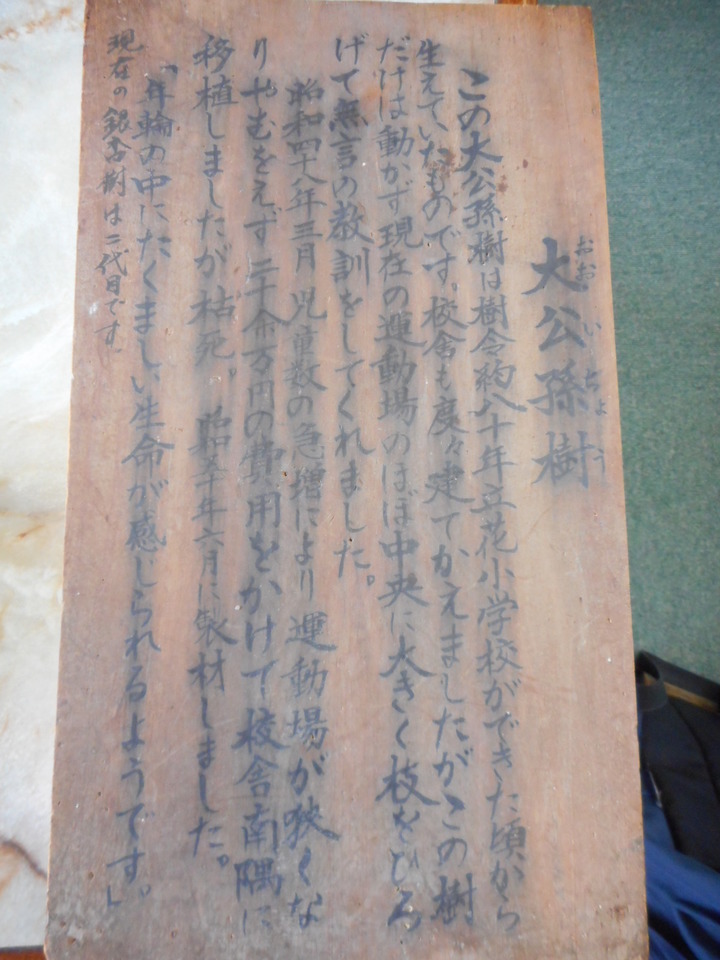 大公孫樹
おおいちょう
この大公孫樹は樹令約八十年立花小学校ができた頃から
生えていたものです。校舎も度々建てかえましたがこの樹
だけは動かず現在の運動場のほぼ中央に大きく枝をひろ
げて無言の教訓をしてくれました。
昭和四十八年三月児童数の急増により運動場が狭くな
りやむをえず二十余万円の費用をかけて校舎南隅に
移植しましたが枯死。昭五十年六月に製材しました。
「年輪の中にたくましい生命が感じられるようです。」
現在の銀杏樹は二代目です